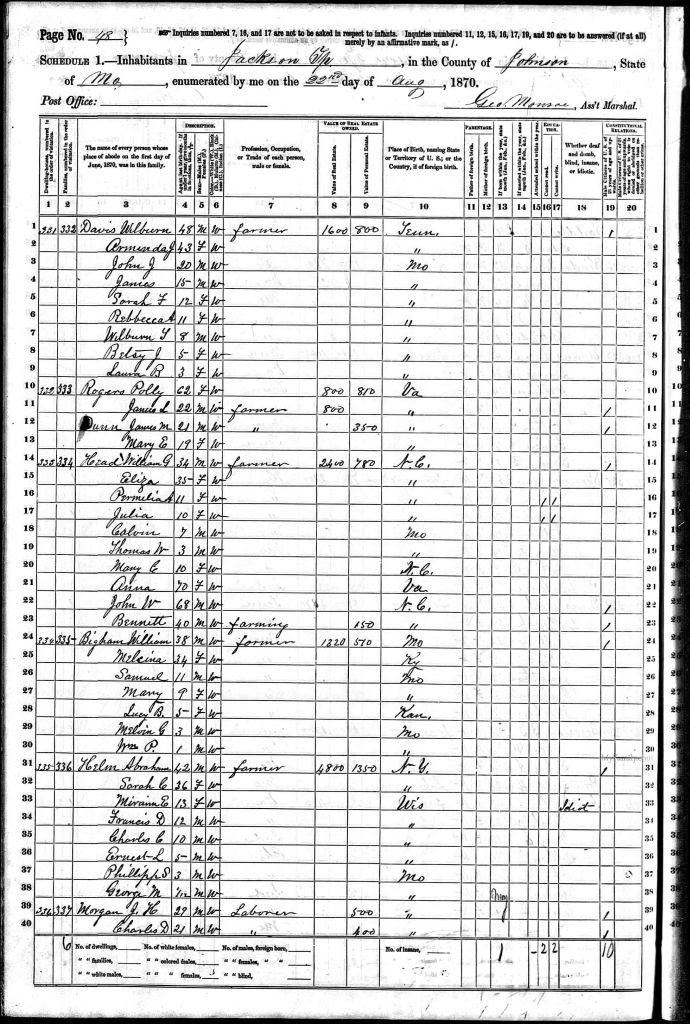 Page No. 48
Inquiries numbered 7, 16, and 17 are not to be asked in respect to infants. Inquiries numbered 11, 12, 15, 16, 17, 19, and 20 are to be answered (if at all) merely by an affirmative mark, as /.
SCHEDULE 1.—Inhabitants in Jackson Tp, in the County of Johnson, State
of Mo, enumerated by me on the 22nd day of Aug, 1870.
Post Office: Geo. Monroe, Ass't Marshal.
VALUE OF REAL ESTATE OWNED. PARENTAGE. EDUCATION. CONSTITUTIONAL RELATIONS.
Dwelling-houses, numbered in the order of visitation.
Families, numbered in the order of visitation.
The name of every person whose place of abode on the first day of June, 1870, was in this family.
Profession, Occupation, or Trade of each person, male or female.
Value of Real Estate.
Value of Personal Estate.
Place of Birth, naming State or Territory of U. S.; or the Country, if of foreign birth.
Father of foreign birth.
Mother of foreign birth.
Attended school within the year.
Cannot read.
Cannot write.
Whether deaf and dumb, blind, insane, or idiotic.
1 2 3 4 5 6 7 8 9 10 11 12 13 14 15 16 17 18 19 20
1 331 332 Davis Wilburn 48 M W farmer 1600 800 Tenn. 1 1
2 Armenda J 43 F W " 2
3 John J 20 M W Mo 3
4 James 15 M W " 4
5 Sarah F 12 F W " 5
6 Rebbecca A 11 F W " 6
7 Wilburn T 8 M W " 7
8 Betsy J 5 F W " 8
9 Laura B 3 F W " 9
10 332 333 Rogers Polly 62 F W 800 810 Va 10
11 James L 22 M W farmer 800 " 1 11
12 Dunn James M 21 M W " 350 " 1 12
13 Mary E 19 F W " 13
14 333 334 Head William G 34 M W farmer 2400 780 N.C. 1 14
15 Eliza 35 F W " 15
16 Permelia A 11 F W " 1 1 16
17 Julia 10 F W " 1 1 17
18 Calvin 7 M W Mo 18
19 Thomas W 3 M W " 19
20 Mary C 10 F W N.C. 20
21 Anna 70 F W Va 21
22 John W 68 M W N.C. 1 22
23 Bennett 40 M W farming 150 " 1 23
24 334 335 Bigham William 38 M W farmer 1320 510 Mo 1 24
25 Melcina 34 F W Ky 25
26 Samuel 11 M W Mo 26
27 Mary 9 F W " 27
28 Lucy B. 5 F W Kan. 28
29 Melvin G 3 M W Mo 29
30 Wm P. 1 M W " 30
31 335 336 Helm Abraham 42 M W farmer 4800 1350 N.Y. 1 31
32 Sarah C 36 F W " 32
33 Mirann E 13 F W Wis Idiot 33
34 Francis D 12 M W " 34
35 Charles C 10 M W " 35
36 Ernest L 5 M W " 36
37 Phillipp S 3 M W Mo 37
38 Georg M M W " May 38
39 336 337 Morgan J. H 29 M W Laborer 500 " 1 39
40 Charles D 21 M W " 400 " 1 40
6 No. of dwellings, No. of white females, No. of males, foreign born, No. of insane, 1 – 2 2 10
" " families, " " colored males, " " females, " "
" " white males, " " " females, " " blind,